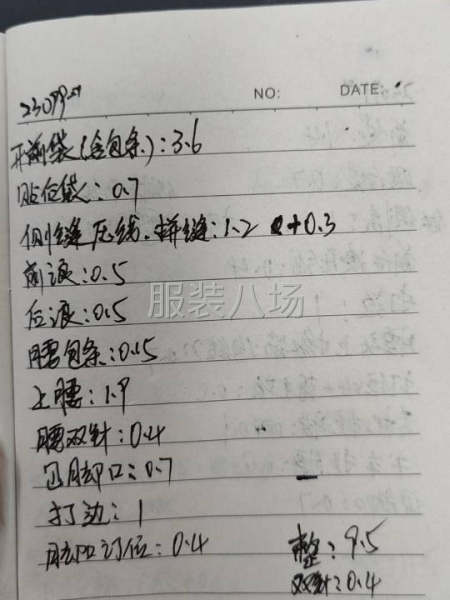 NO: DATE:
23099
开前袋(含包条):3.6
贴后袋:0.7
侧缝压线.拼缝:1.2 +0.3
前浪:0.5
后浪:0.5
腰包条:0.15
上腰:1.9
腰双针:0.4
脚口:0.7
打边:1
脚口订位:0.4
整:9.5
双针:0.4
服装八场